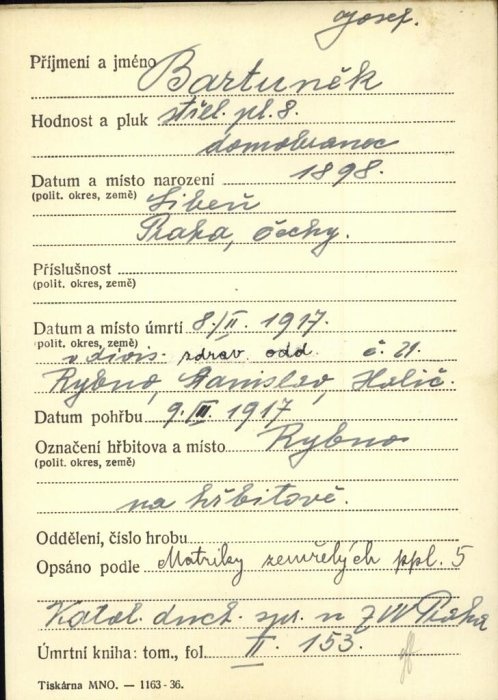 Josef.
Příjmení a jméno Bartuněk
Hodnost a pluk střel. pl. 8.
domobranec
Datum a místo narození 1898.
(polit. okres, země) Libeň
Praha, Čechy.
Příslušnost
(polit. okres, země)
Datum a místo úmrtí 8./II. 1917.
(polit. okres, země)
v divis. zdrav. odd. č. 21.
Rybno, Stanislav, Halič.
Datum pohřbu 9. II. 1917
Označení hřbitova a místo Rybno
(polit. okres, země)
na hřbitově.
Oddělení, číslo hrobu
Opsáno podle Matriky zemřelých ppl. 5
Katol. duch. spr. n ZVV Praha
Úmrtní kniha: tom., fol. II. 153.
Tiskárna MNO. — 1163-36.